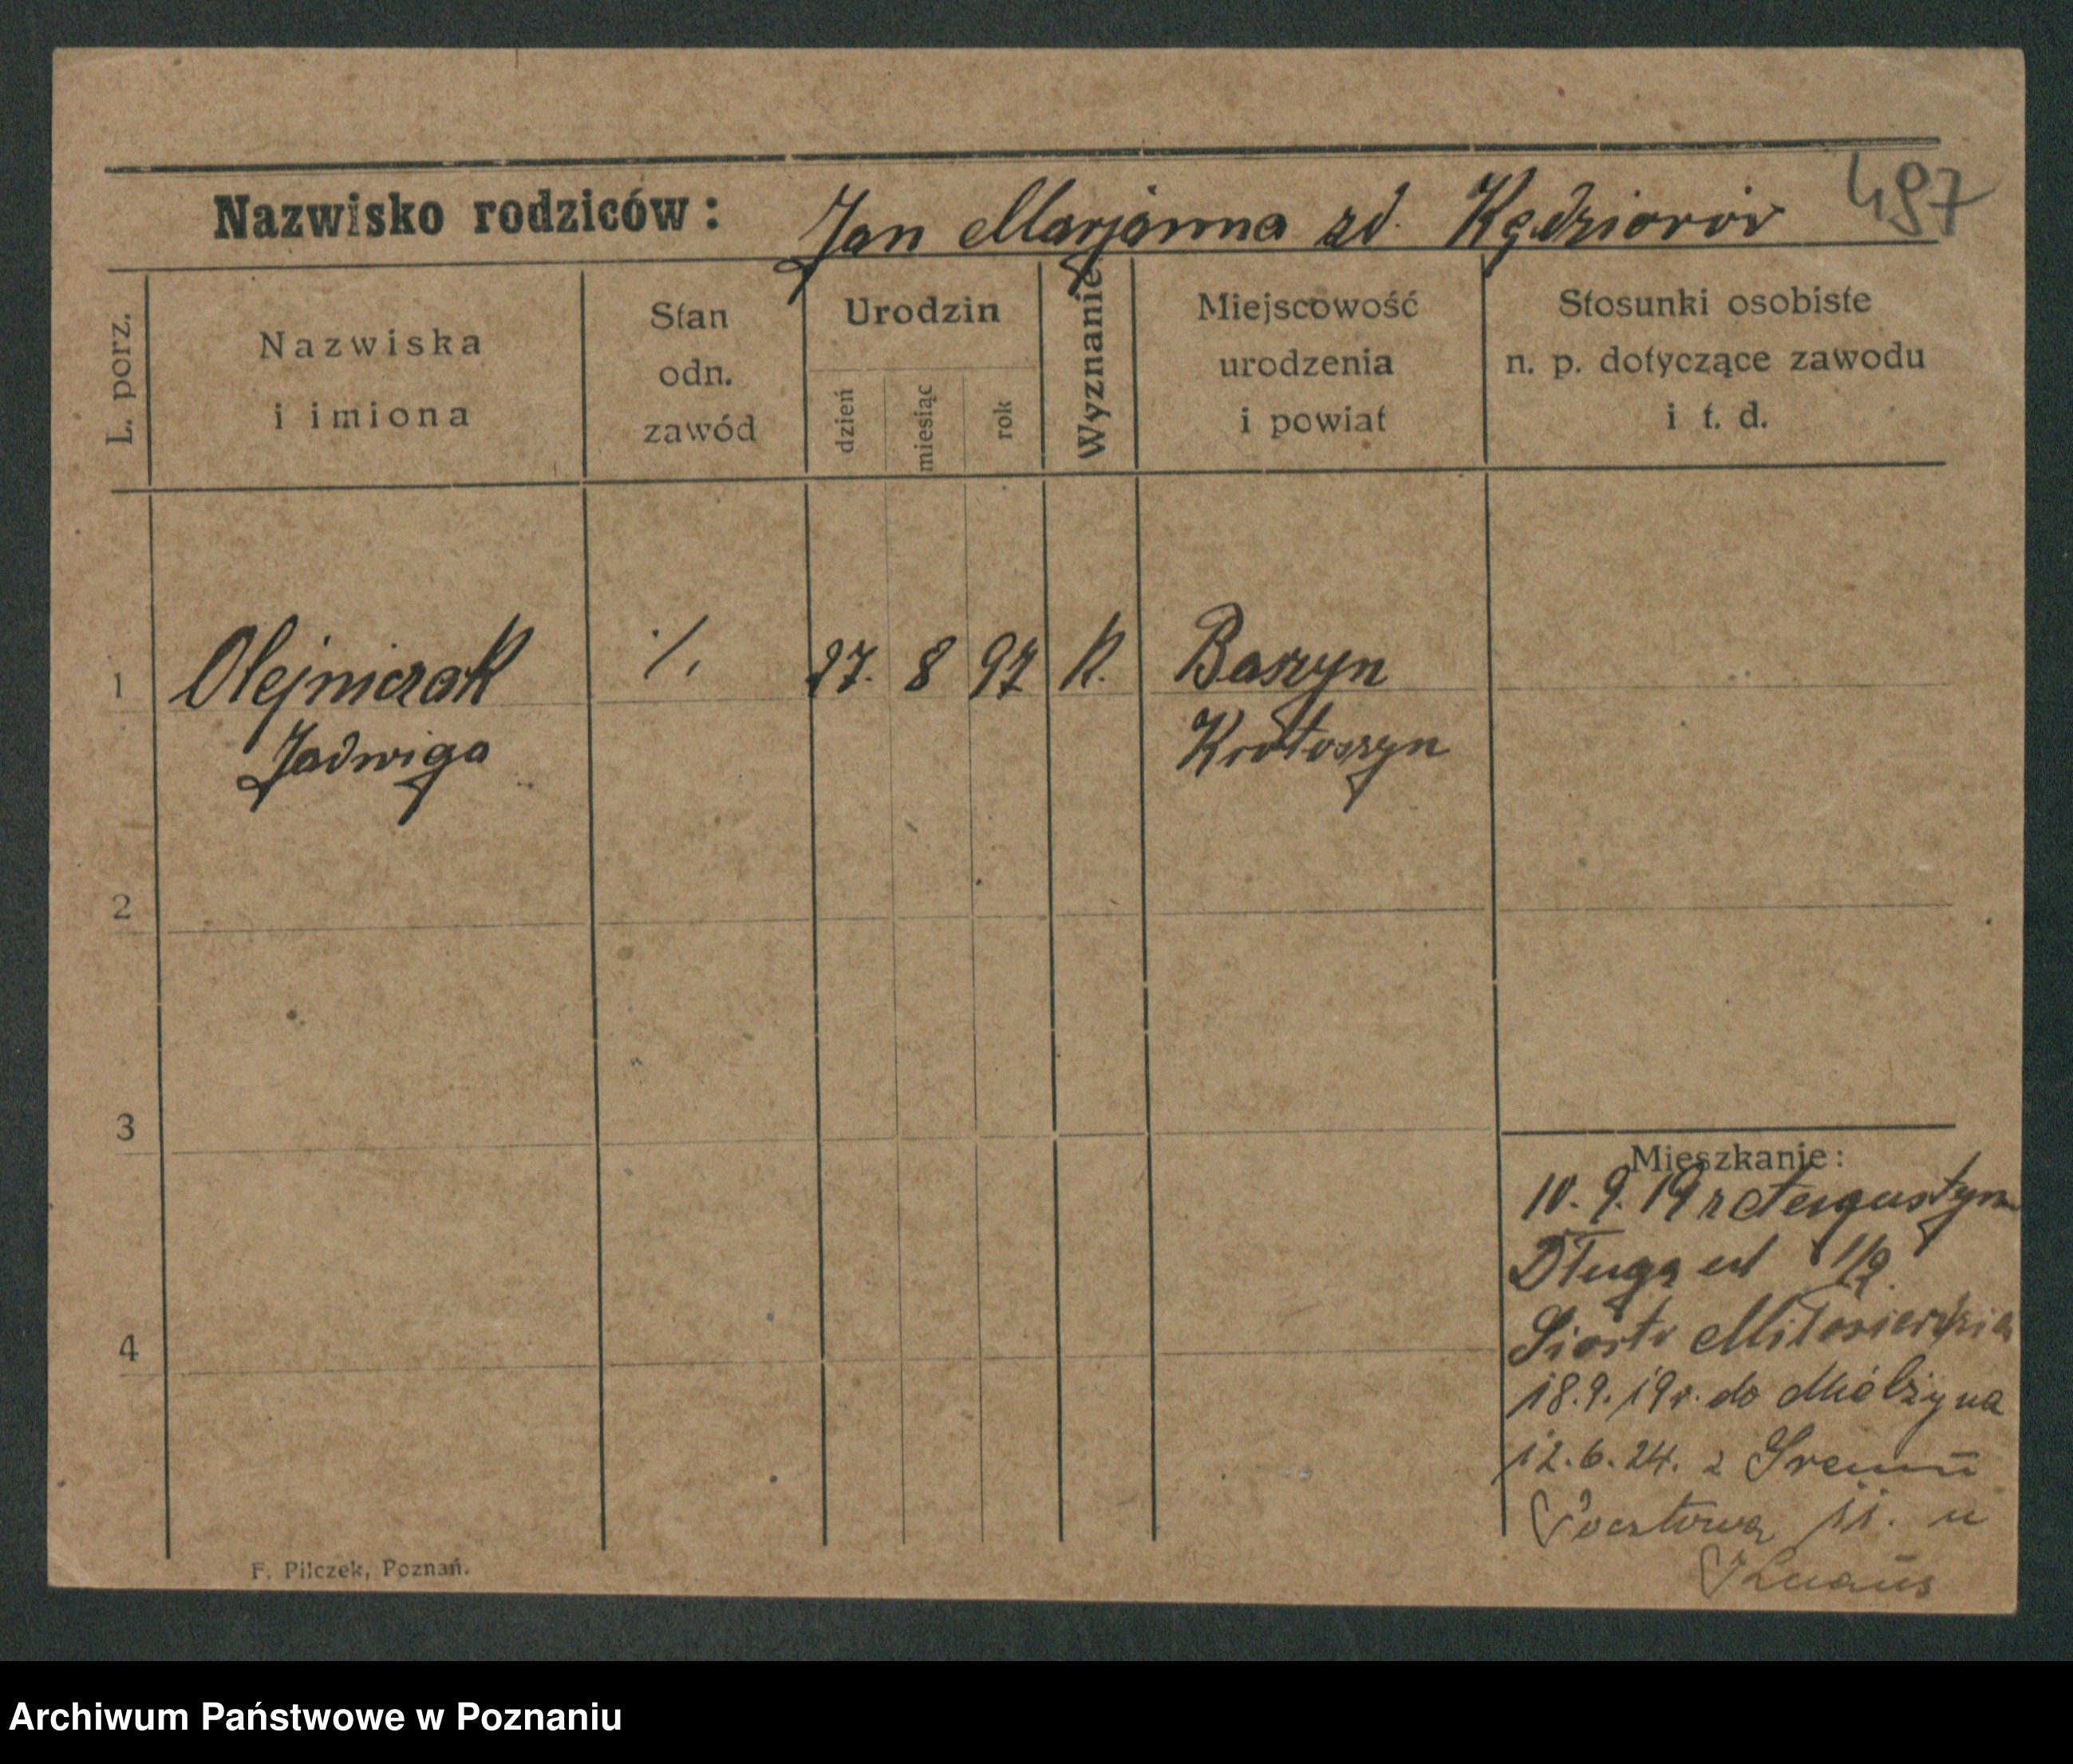 497
Nazwisko rodziców: Jan Marjanna zd. Kędziorów
L. porz.
Nazwiska
i imiona
Stan
odn.
zawód
Urodzin
dzień
miesiąc
rok
Wyznanie
Miejscowość
urodzenia
i powiat
Stosunki osobiste
n. p. dotyczące zawodu
i t. d.
1 Olejniczak ./. 27. 8 97 K. Baszyn
Jadwiga Krotoszyn
2
3
4
Mieszkanie:
10. 9. 19 z Augustyn
Długa ul 1/2
Siostr Miłosierdzia
18.9.19r. do
12.6.24. z Śremu
Pocztowa 11. u
F. Pilczek, Poznań.
Archiwum Państwowe w Poznaniu